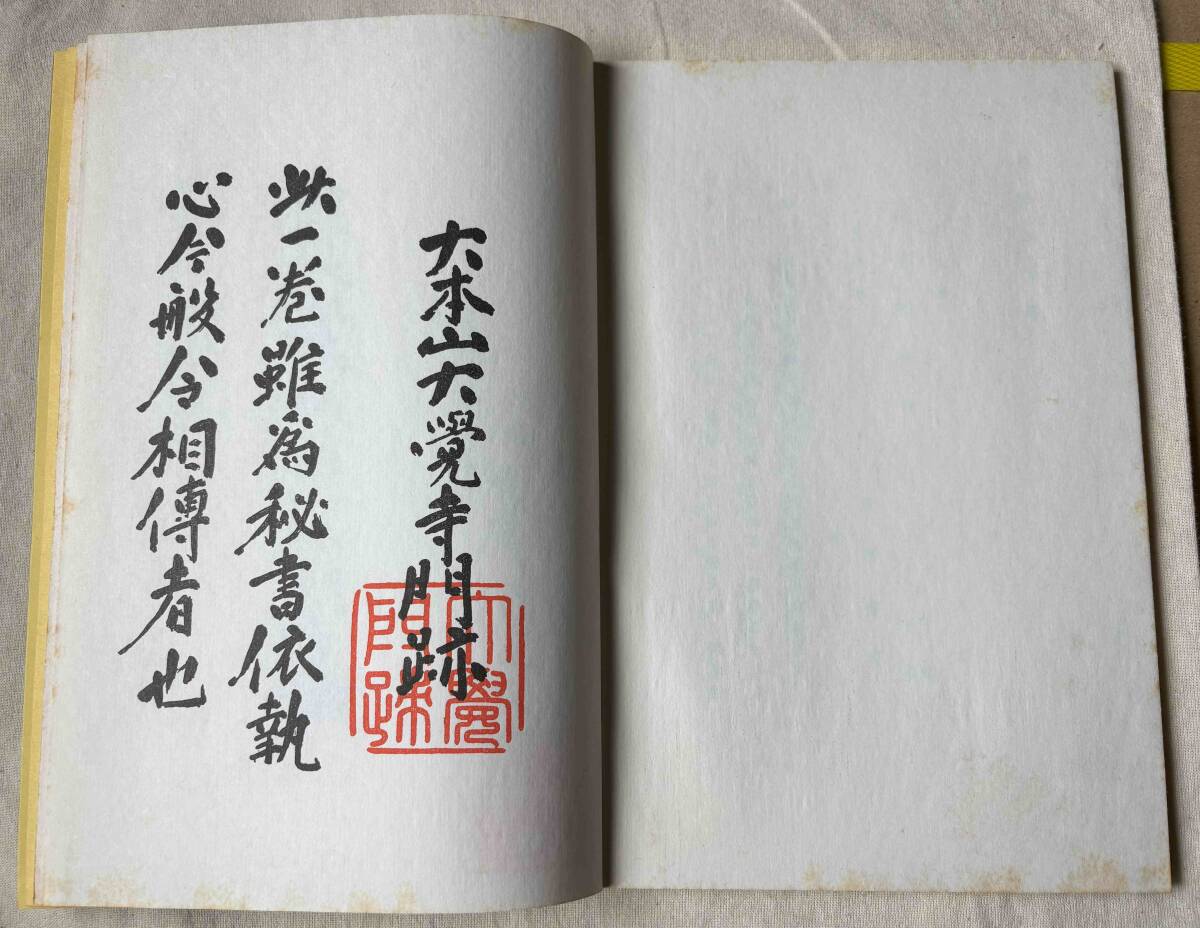 大本山大覺寺門跡
此一巻雖為秘書依執
心今般令相傳者也
大覺
門跡